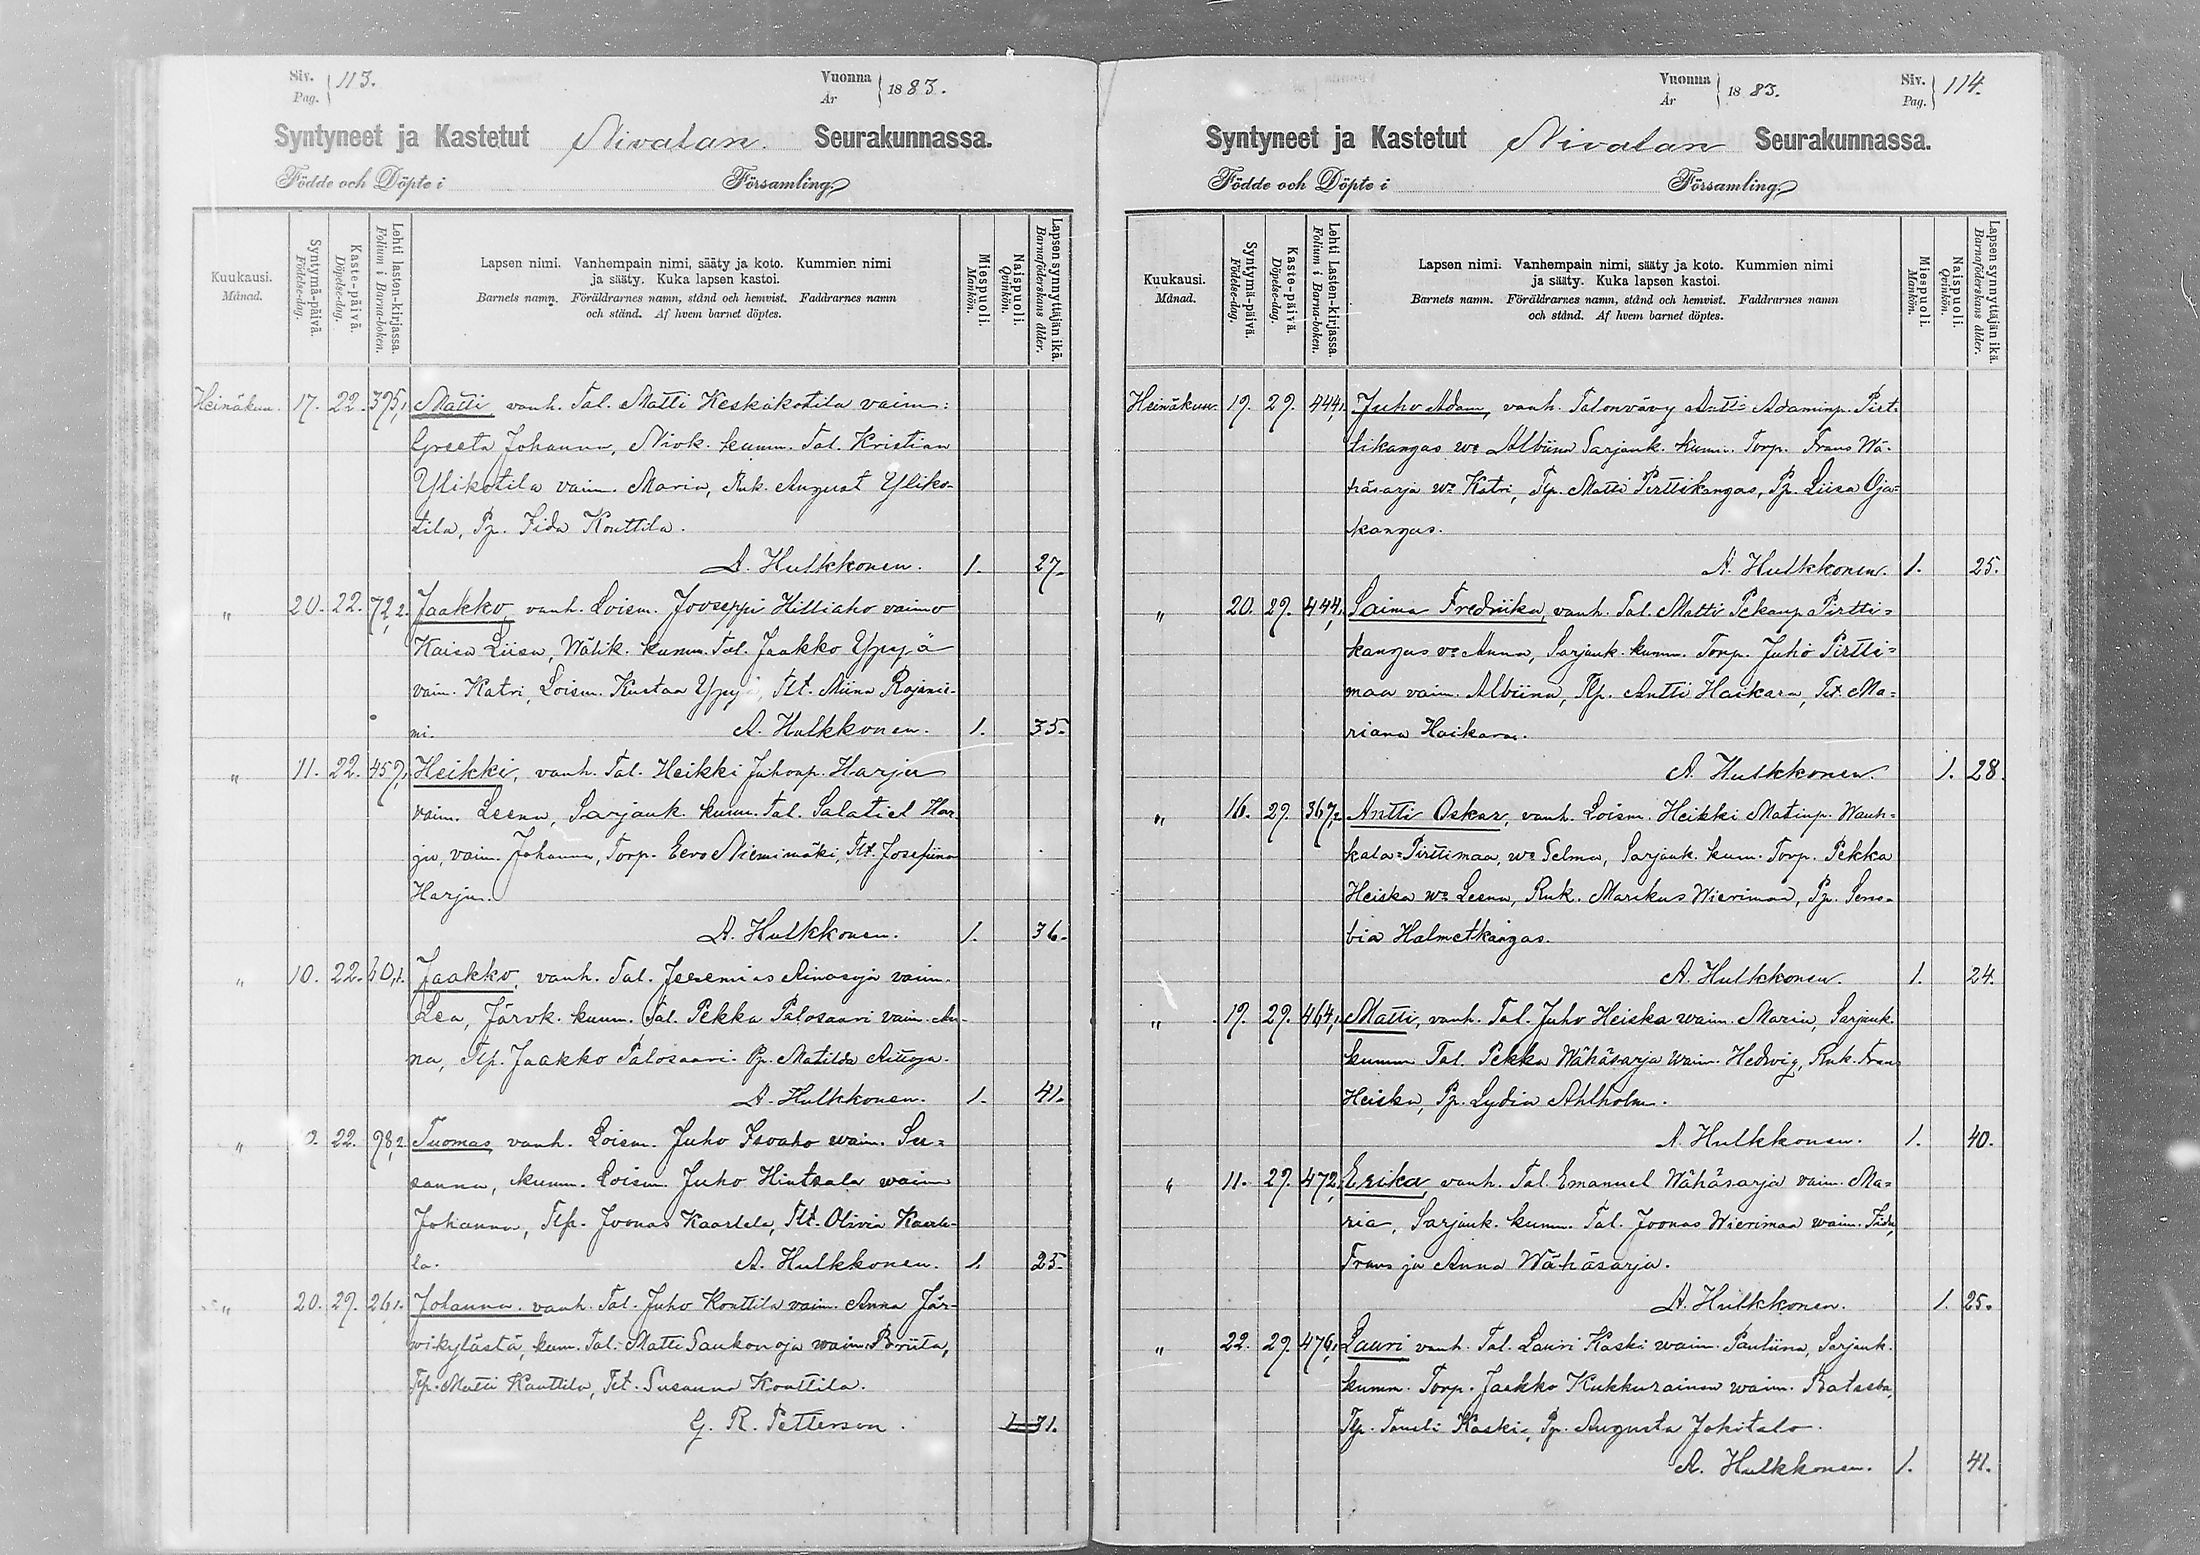 Siv. Pag. 113. Vuonna År 1883.
Syntyneet ja Kastetut Nivalan Seurakunnassa.
Födde och Döpte i Församling.
Kuukausi. Månad.
Syntymä-päivä. Födelse-dag.
Kaste-päivä. Döpelse-dag.
Lehti lasten-kirjassa. Folium i Barna-boken.
Lapsen nimi. Vanhempain nimi, sääty ja koto. Kummien nimi
ja sääty. Kuka lapsen kastoi.
Barnets namn. Föräldrarnes namn, stånd och hemvist. Faddrarnes namn
och stånd. Af hvem barnet döptes.
Miespuoli. Mankön.
Naispuoli. Qvinkön.
Lapsen synnyttäjän ikä. Barnaföderskans ålder.
Heinäkuu. 17. 22. 395,1 Matti vanh. Tal. Matti Keskikotila vaim:
Greeta Johanna, Nivk. kumm. Tal. Kristian
Ylikotila vaim. Maria, Ruk. August Yliko-
tila, Pp. Fida Konttila.
A. Hulkkonen. 1. 27.
" 20. 22. 72,2. Jaakko, vanh. Loism. Jooseppi Hilliaho vaimo
Kaisa Liisa, Wälik. kumm. Tal. Jaakko Yppyä
vaim. Katri, Loism. Kustaa Yppyä, Tlt. Miina Rajanie-
mi. A. Hulkkonen. 1. 35.
" 11. 22. 457,1 Heikki, vanh. Tal. Heikki Juhonp. Harju
vaim. Leena, Sarjank. kumm. Tal. Salatiel Har-
ju, vaim. Johanna, Torp. Eero Niemimäki, Tlt. Josefiina
Harju.
A. Hulkkonen. 1. 36.
" 10. 22. 40,1. Jaakko, vanh. Tal. Jeremias Ainasoja vaim.
Lea, Järvk. kumm. Tal. Pekka Palosaari vaim. An-
na, Tlp. Jaakko Palosaari. Pp. Matilda
A. Hulkkonen. 1. 41.
" 22. 98,2. Tuomas, vanh. Loism. Juho Isoaho waim. Su-
sanna, kumm. Loism. Juho Hintsala waim
Johanna, Tlp. Joonas Kaarlela, Tlt. Olivia Kaarle-
la. A. Hulkkonen. 1. 25.
" 20. 29. 26,1. Johanna. vanh. Tal. Juho Konttila vaim. Anna Jär-
wikylästä, kum. Tal. Matti Saukonoja waim. Briita,
Tlp. Matti Konttila, Tlt. Susanna Konttila.
G. R. Petterson. 1 31.
Vuonna År 1883. Siv. Pag. 114.
Syntyneet ja Kastetut Nivalan Seurakunnassa.
Födde och Döpte i Församling.
Kuukausi. Månad.
Syntymä-päivä. Födelse-dag.
Kaste-päivä. Döpelse-dag.
Lehti lasten-kirjassa. Folium i Barna-boken.
Lapsen nimi. Vanhempain nimi, sääty ja koto. Kummien nimi
ja sääty. Kuka lapsen kastoi.
Barnets namn. Föräldrarnes namn, stånd och hemvist. Faddrarnes namn
och stånd. Af hvem barnet döptes.
Miespuoli. Mankön.
Naispuoli. Qvinkön.
Lapsen synnyttäjän ikä. Barnaföderskans ålder.
Heinäkuu. 19. 29. 444,1 Juho Adam, vanh. Talonvävy Antti Adaminp. Pirt-
tikangas wo Albiina Sarjank. kumm. Torp. Frans Wä-
häsarja wo Katri, Tlp. Matti Pirttikangas, Pp. Liisa Oja-
kangas.
A. Hulkkonen. 1. 25.
" 20. 29. 444,1 Saima Fredriika, vanh. Tal. Matti Pekanp. Pirtti-
kangas vo Anna, Sarjank. kumm. Torp. Juho Pirtti-
maa vaim. Albiina, Tlp. Antti Haikara, Tlt. Ma-
riana Haikara.
A. Hulkkonen. 1. 28.
" 16. 29. 367,2 Antti Oskar, vanh. Loism. Heikki Matinp. Wauh-
kala-Pirttimaa, wo Selma, Sarjank. kum. Torp. Pekka
Heiska wo Leena, Ruk. Markus Wierimaa, Pp. Seno-
bia Halmetkangas.
A. Hulkkonen. 1. 24.
" 19. 29. 464,1 Matti, vanh. Tal. Juho Heiska waim. Maria, Sarjank.
kumm Tal. Pekka Wähäsarja Waim. Hedvig, Ruk. Frans
Heiska, Pp. Lydia Ahlholm.
A. Hulkkonen. 1. 40.
" 11. 29. 472, Erika, vanh. Tal. Emanuel Wähäsarja vaim. Ma-
ria, Sarjank. kumm. Tal. Joonas Wierimaa waim. Fiida,
Frans ja Anna Wähäsarja.
A. Hulkkonen. 1. 25.
" 22. 29. 476,1 Lauri vanh. Tal. Lauri Kaski waim. Pauliina, Sarjank.
kumm. Torp. Jaakko Kukkurainen waim. Batseba,
Tlp. Taneli Kaski, Pp. Augusta Jokitalo.
A. Hulkkonen. 1. 41.